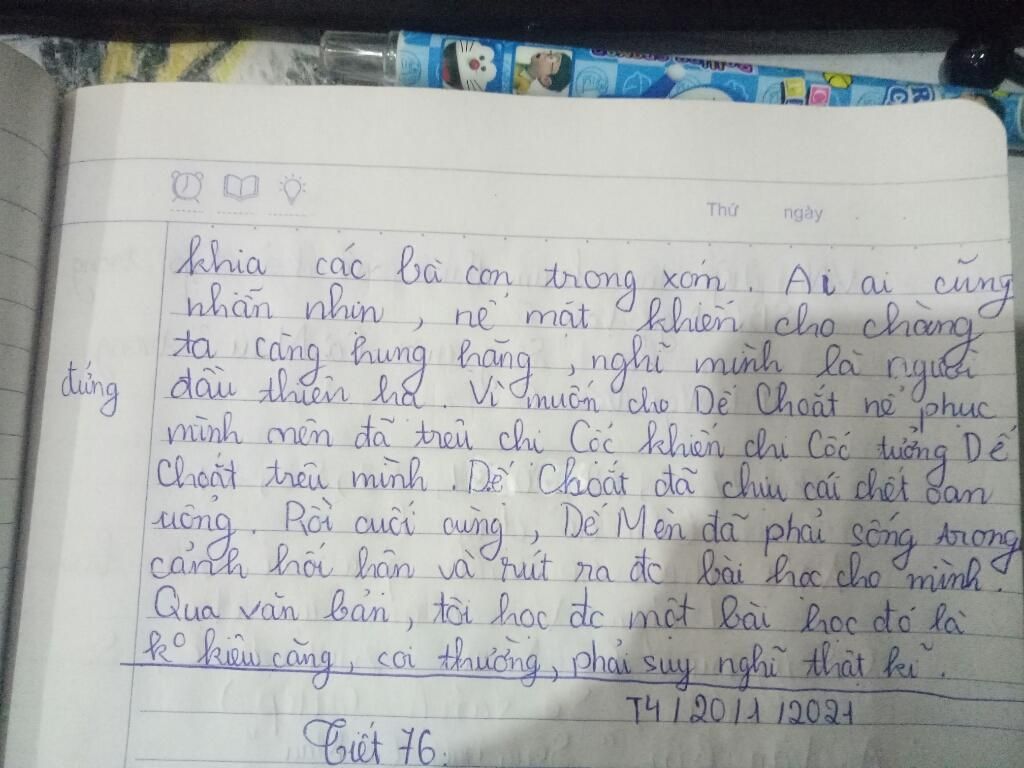 Thứ ngày
khia các bà con trong xóm. Ai ai cũng
nhẫn nhịn, nể mặt khiến cho chàng
ta càng hung hăng, nghĩ mình là người
đứng
đầu thiên hạ. Vì muốn cho Dế Choắt nể phục
mình nên đã trêu chị Cốc khiến chị Cốc tưởng Dế
Choắt trêu mình. Dế Choắt đã chịu cái chết oan
uổng. Rồi cuối cùng, Dế Mèn đã phải sống trong
cảnh hối hận và rút ra đc bài học cho mình.
Qua văn bản, tôi học đc một bài học đó là
k° kiêu căng, coi thường, phải suy nghĩ thật kĩ.
T4/20/1/2021
Tiết 76: